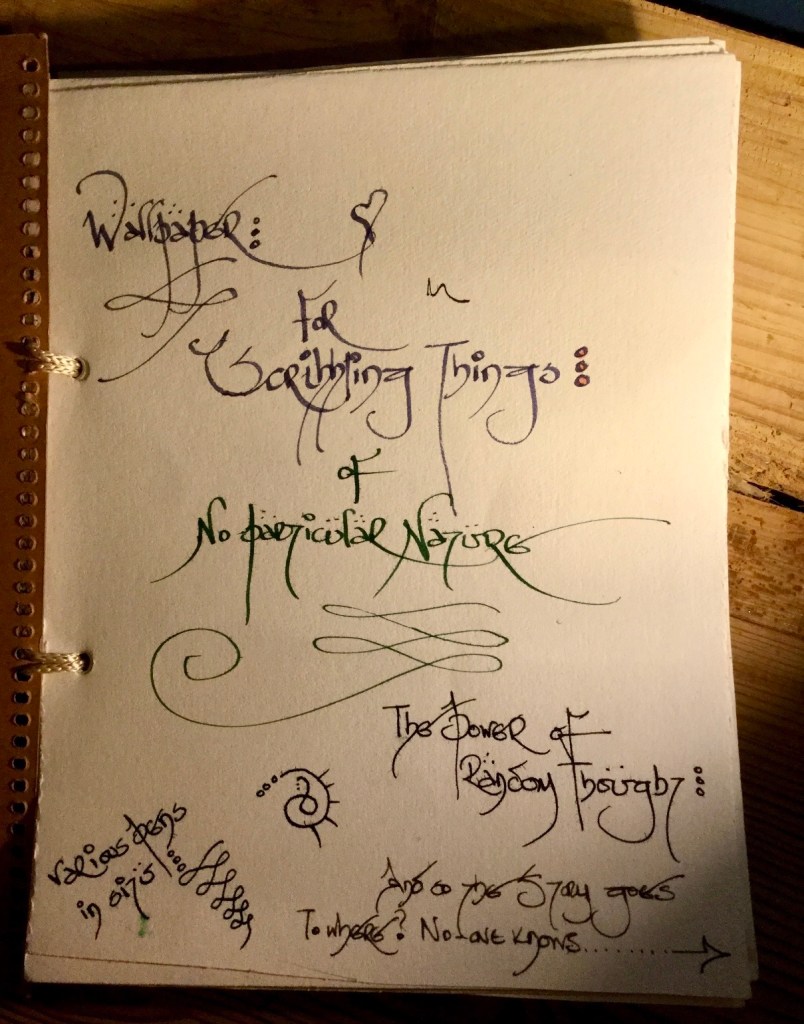 Wallpaper:
For
Scribbling Things:
of
No particular Nature
The Power of
Random Thought:
Various pens
in situ
And so the Story goes
To where? No-one knows........